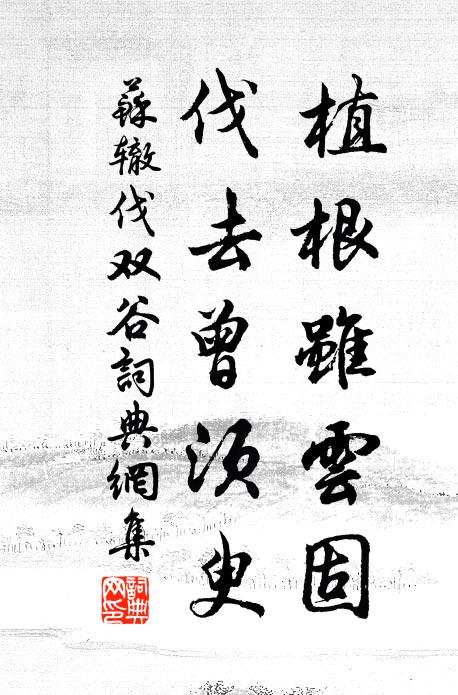 植根雖雲固
伐去曾須臾
蘇辙伐双谷詞典網集
詞典网印